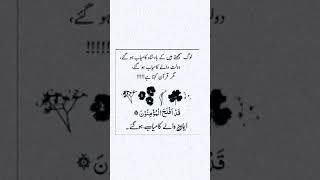 لوگ سمجھتے ہیں کے بادشاہ کامیاب ہو گئے،
دولت والے کامیاب ہو گئے،
مگر قرآن کہتا ہے!!!!
!!!!!
قَدْ اَفْلَحَ الْمُؤْمِنُوْنَ ۞
ایمان والے کامیاب ہو گئے۔